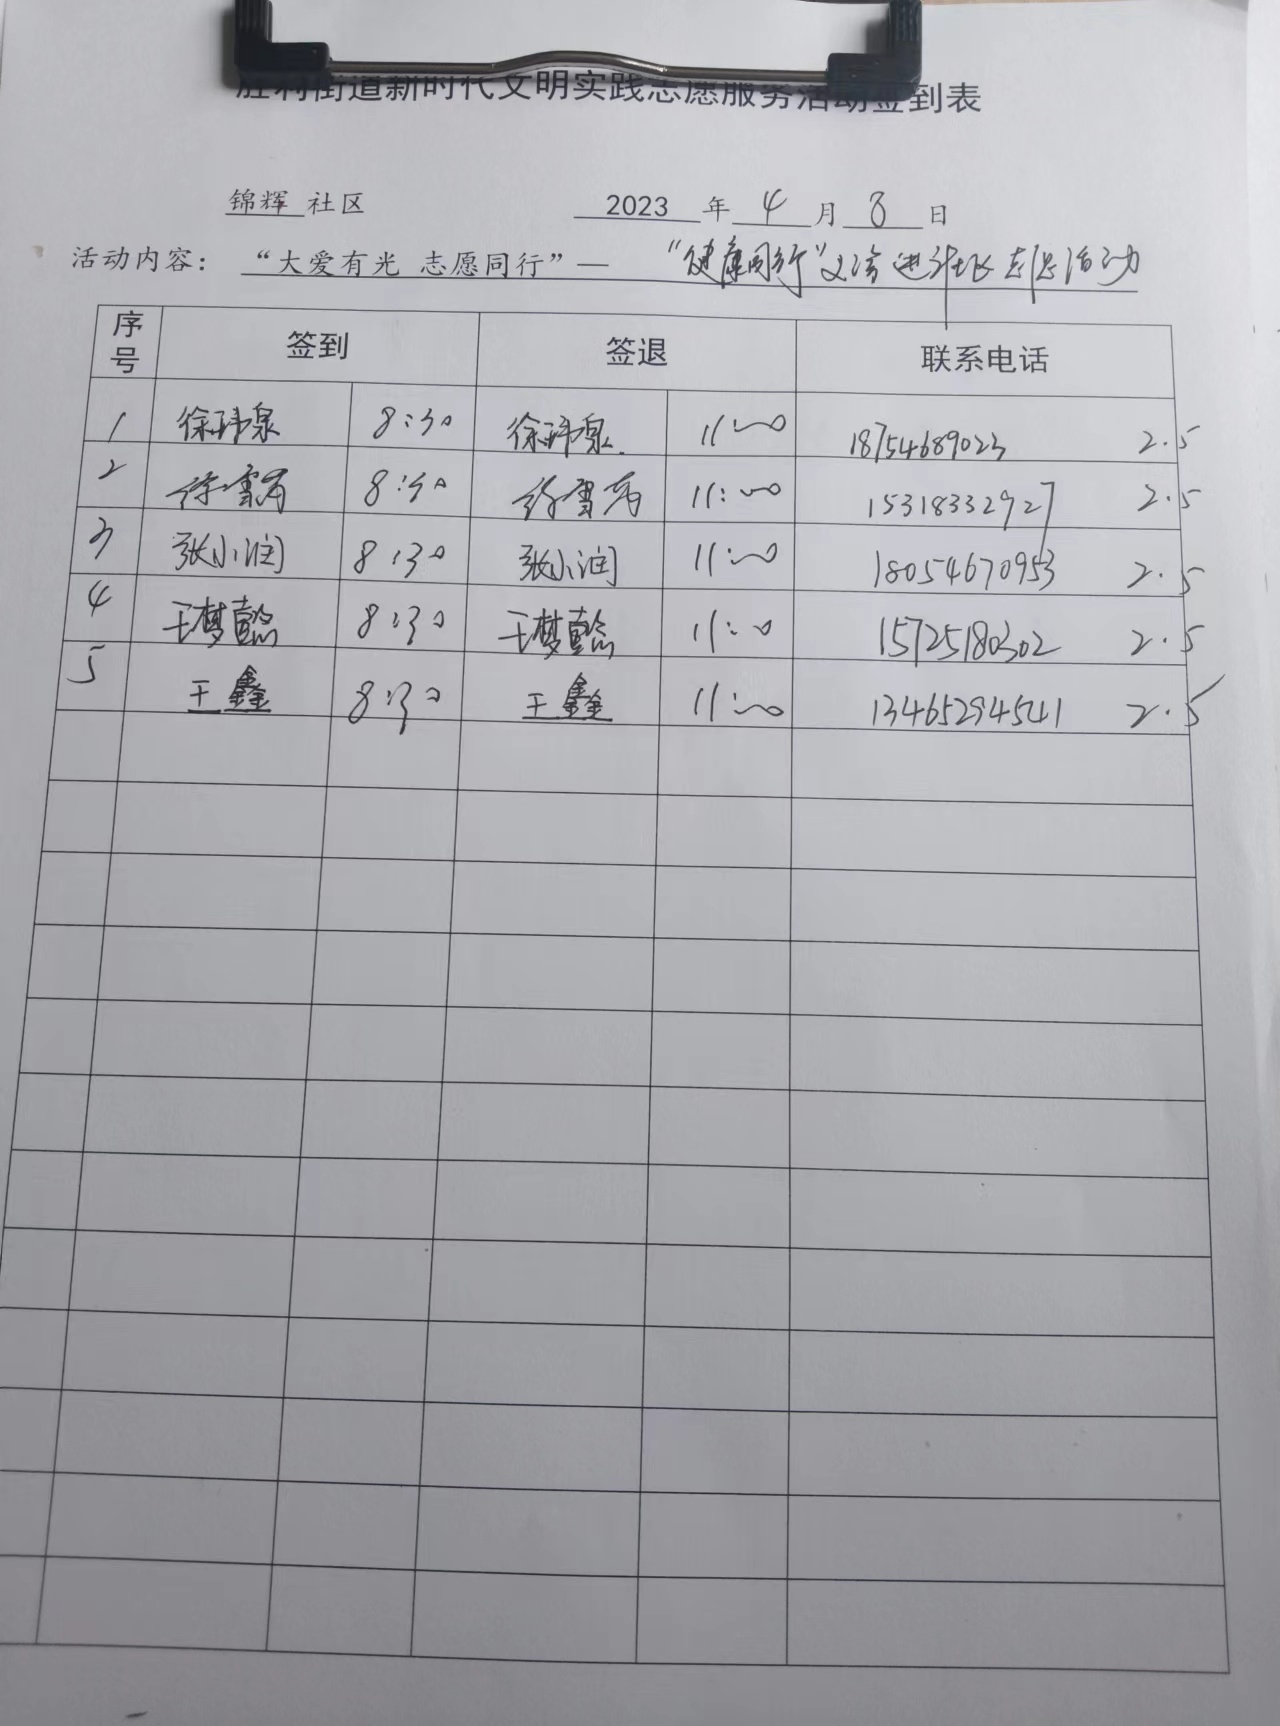 胜利街道新时代文明实践志愿服务活动签到表
锦辉 社区 2023 年 4 月 8 日
活动内容： “大爱有光 志愿同行”— “健康同行”义诊进社区志愿活动
序号 签到 签退 联系电话
1 徐玮泉 8:30 徐玮泉 11:00 18754689023 2.5
2 徐雪 8:30 徐雪 11:00 15318332927 2.5
3 张小润 8:30 张小润 11:00 18054670953 2.5
4 王梦懿 8:30 王梦懿 11:00 15725180302 2.5
5 王鑫 8:30 王鑫 11:00 13465294541 2.5